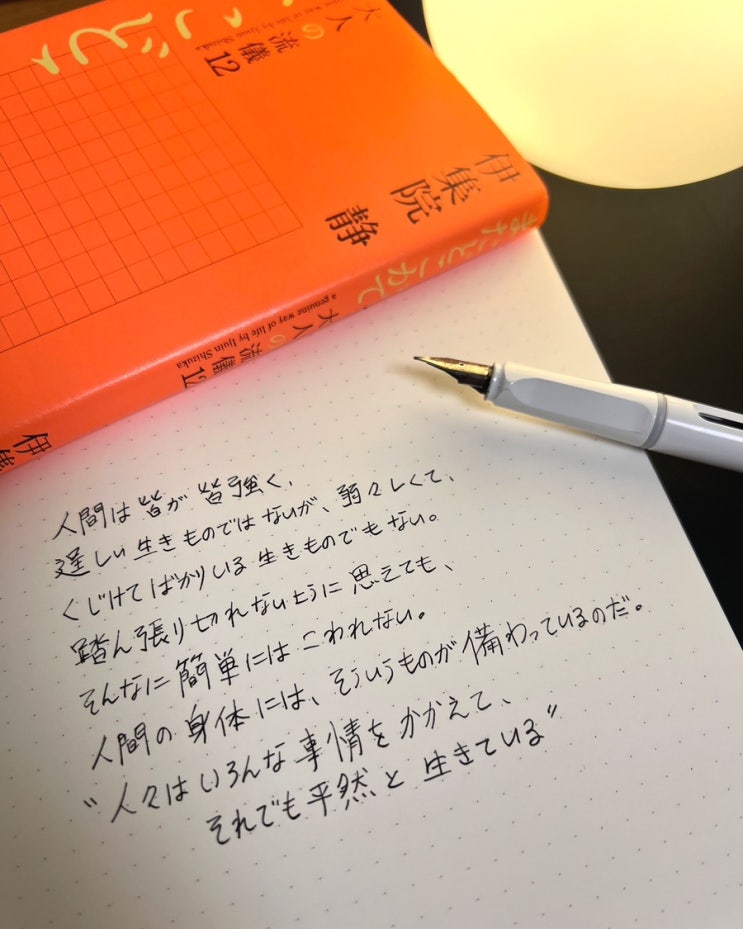 way of life by Ijuin Shizuka
大人の流儀12
伊集院 静
またどこかで
大人の流儀12
a genuine way of life by Ijuin Shizuka
伊
人間は皆が皆強く、
逞しい生きものではないが、弱々しくて、
くじけてばかりいる生きものでもない。
踏ん張り切れないように思えても、
そんなに簡単にはこわれない。
人間の身体には、そういうものが備わっているのだ。
"人々はいろんな事情をかかえて、
それでも平然と生きている"